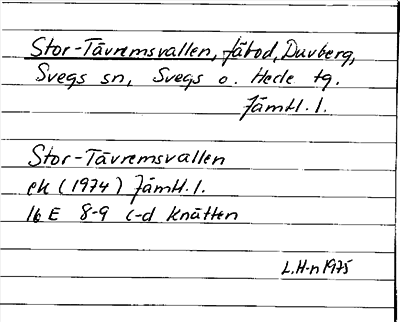 Stor-Tävremsvallen, fäbod, Duvberg,
Svegs sn, Svegs o. Hede tg.
Jämtl. l.
Stor-Tävremsvallen
ek (1974) Jämtl. l.
16 E 8-9 c-d Knätten
L. H-n 1975